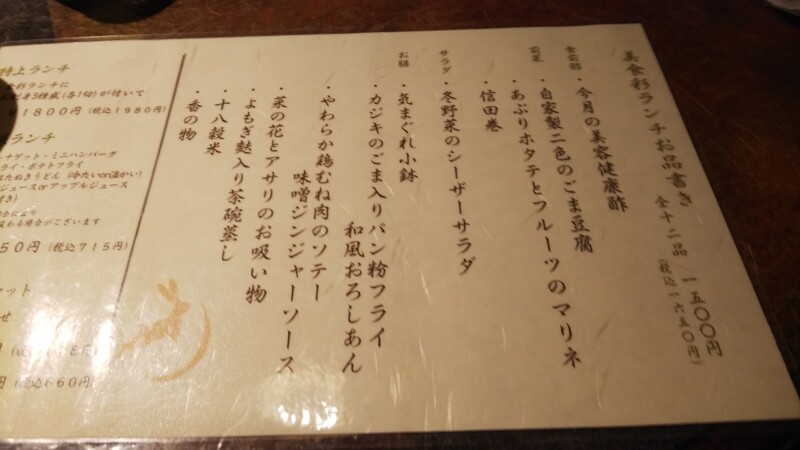 美食彩ランチお品書き 全十二品 一五〇〇円
(税込一六五〇円)
食前酢
・今月の美容健康酢
前菜
・自家製二色のごま豆腐
・あぶりホタテとフルーツのマリネ
・信田巻
サラダ
・冬野菜のシーザーサラダ
お膳
・気まぐれ小鉢
・カジキのごま入りパン粉フライ
和風おろしあん
・やわらか鶏むね肉のソテー
味噌ジンジャーソース
・菜の花とアサリのお吸い物
・よもぎ麩入り茶碗蒸し
・十八穀米
・香の物
特上ランチ
ランチに
3種盛(各1切)が付いて
1800円(税込1980円)
ランチ
ナゲット・ミニハンバーグ
フライ・ポテトフライ
たぬきうどん(冷たいor温かい)
ジュースorアップルジュース
変わる場合がございます
50円(税込715円)
ット
せ
円(税込660円)